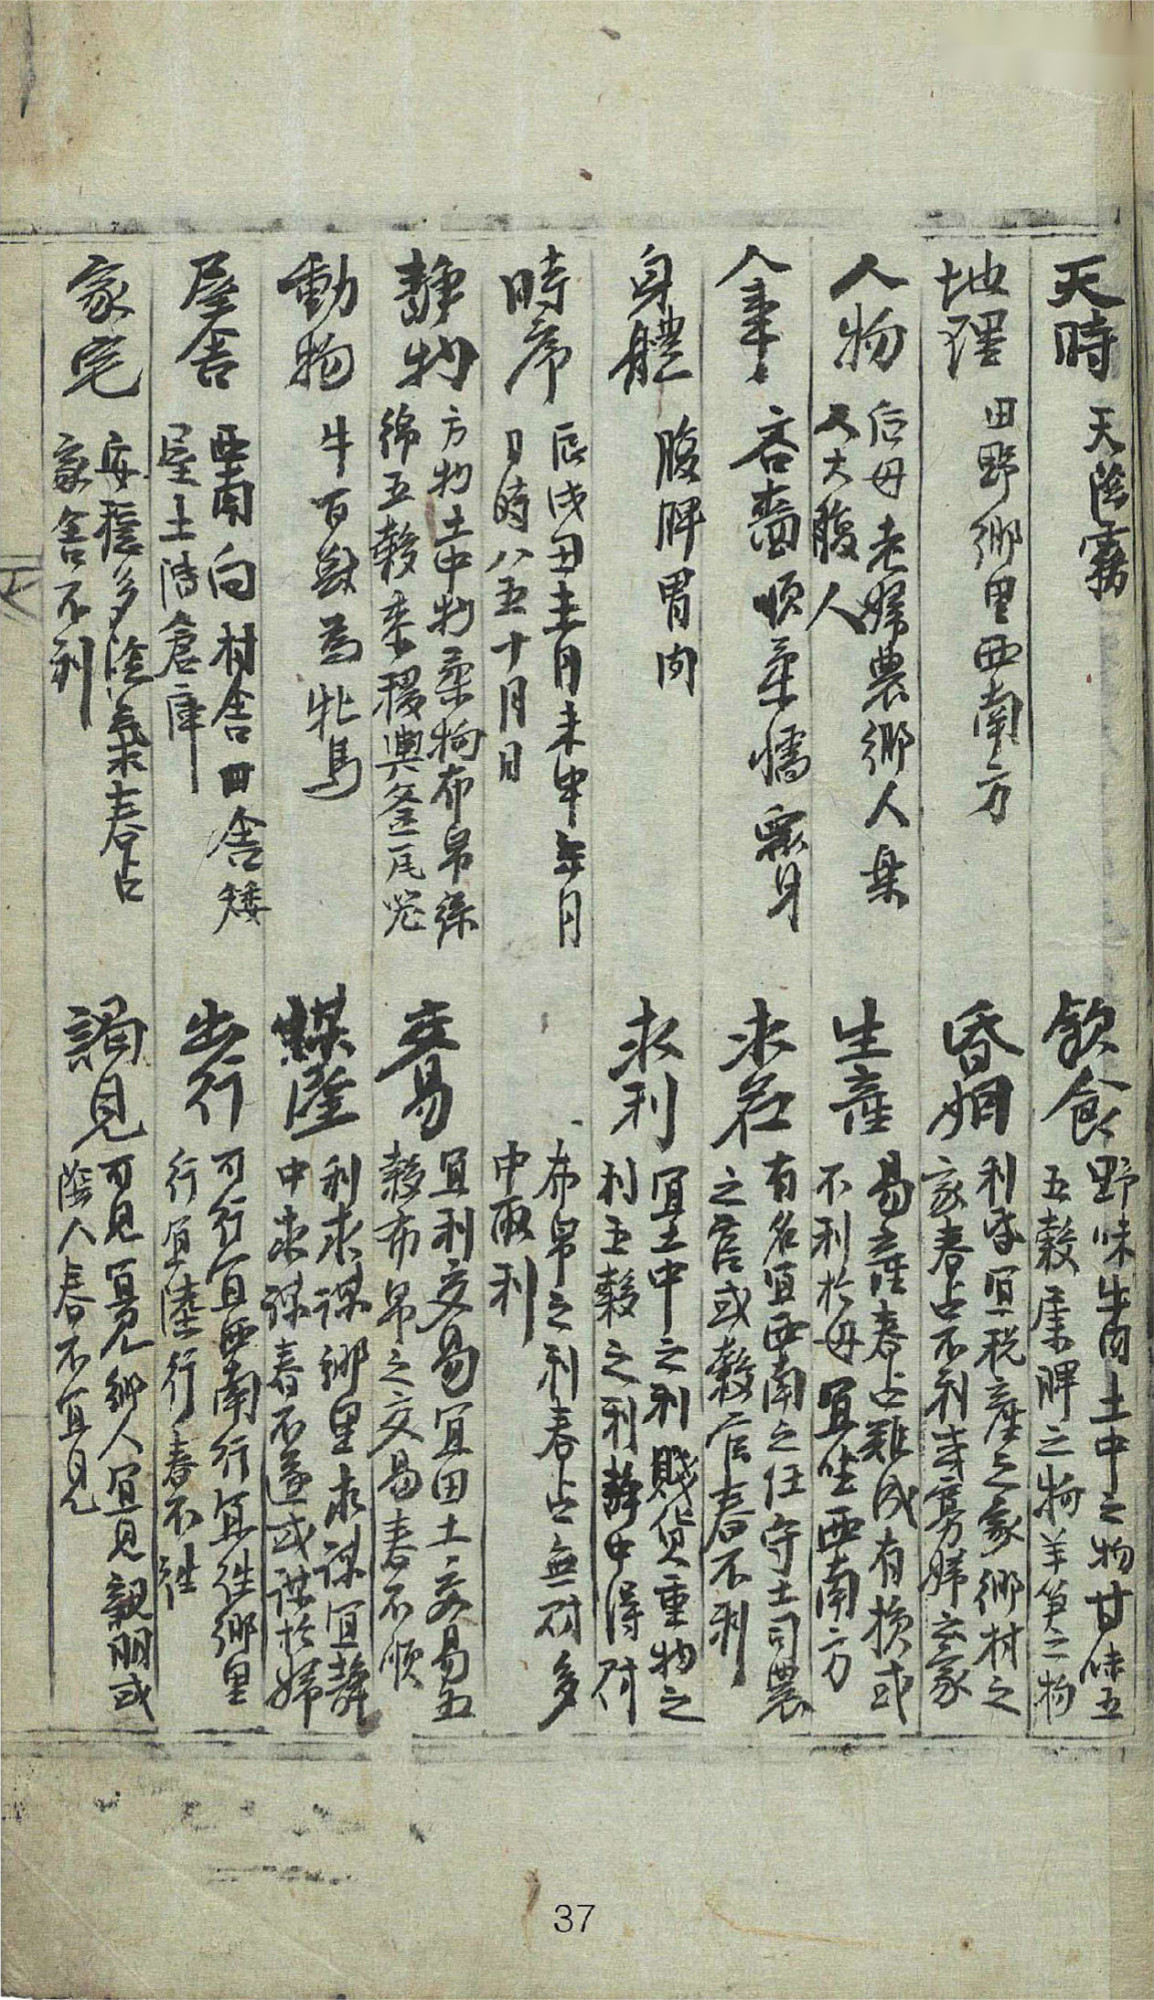 天時 天陰霧
地理 田野鄉里西南方
人物 后母老婦農鄉人眾
又大腹人
人事 吝嗇順柔懦衆
身體 腹脾胃肉
時序 辰戌丑未月未申年月
日時八五十月日
靜物 方物土中物柔物布帛絲
綿五穀來稷輿釜瓦器
動物 牛百獸為牝馬
屋舍 西南向村舍田舍矮
屋土階倉庫
家宅 安穩多陰氣春占
家舍不利
飲食 野味牛肉土中之物甘味五
五穀 之物羊笋之物
婚姻 利 宜稅產之家鄉村之
家春占不利或寡婦之家
生產 易產春占難成有損或
不利於母宜坐西南方
求名 有名宜西南之任守土司農
之官或穀官春不利
求利 宜土中之利賤貨重物之
利五穀之利靜中得財
布帛之利春占無財多
中取利
交易 宜利交易宜田土交易五
穀布帛之交易春不順
謀 利求謀鄉里求謀宜靜
中求謀春不遂或謀於婦
出行 可行宜西南行宜往鄉里
行宜陸行春不往
謁見 可見宜見鄉人宜見親朋或
陰人春不宜見
37